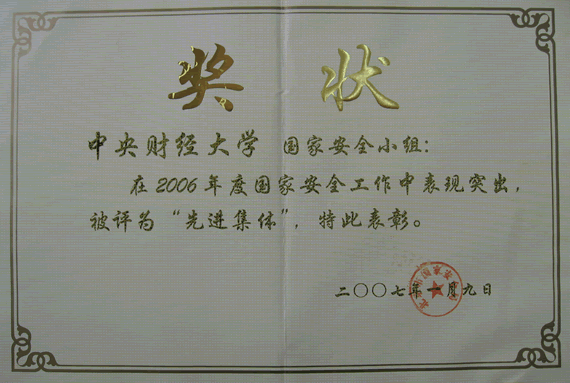 奖 状
中央财经大学 国家安全小组:
在2006年度国家安全工作中表现突出,
被评为“先进集体”,特此表彰。
二〇〇七年一月九日
国家安全